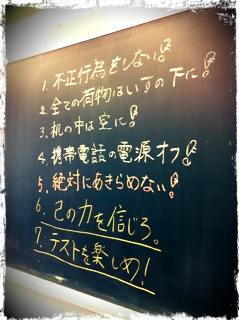 1. 不正行為をしない!
2. 全ての荷物はいすの下に!
3. 机の中は空に!
4. 携帯電話の電源オフ!
5. 絶対にあきらめない!
6. 己の力を信じろ。
7. テストを楽しめ!